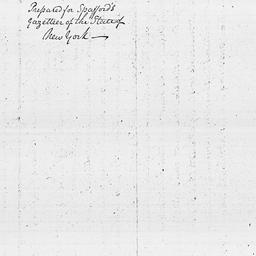 Prepared for Spafford's
gazetteer of the State of
New York —